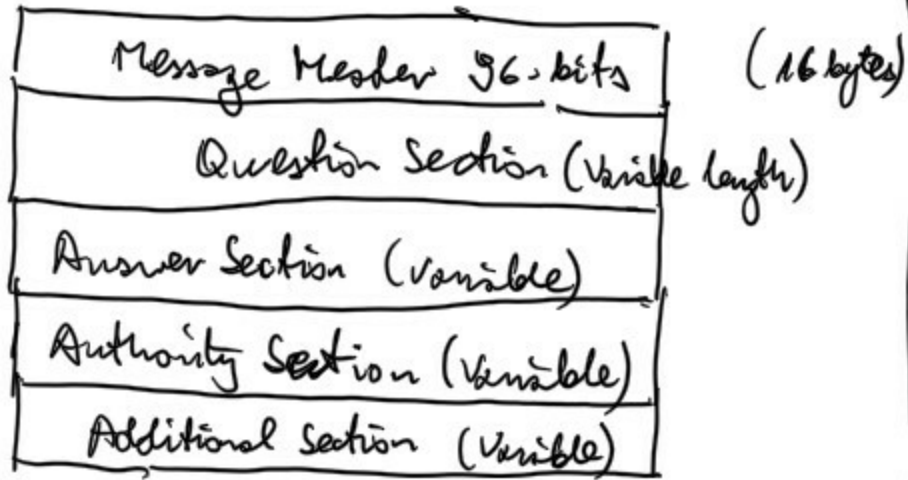 Message Header 96-bits (16 bytes)
Question Section (Variable length)
Answer Section (Variable)
Authority Section (Variable)
Additional Section (Variable)